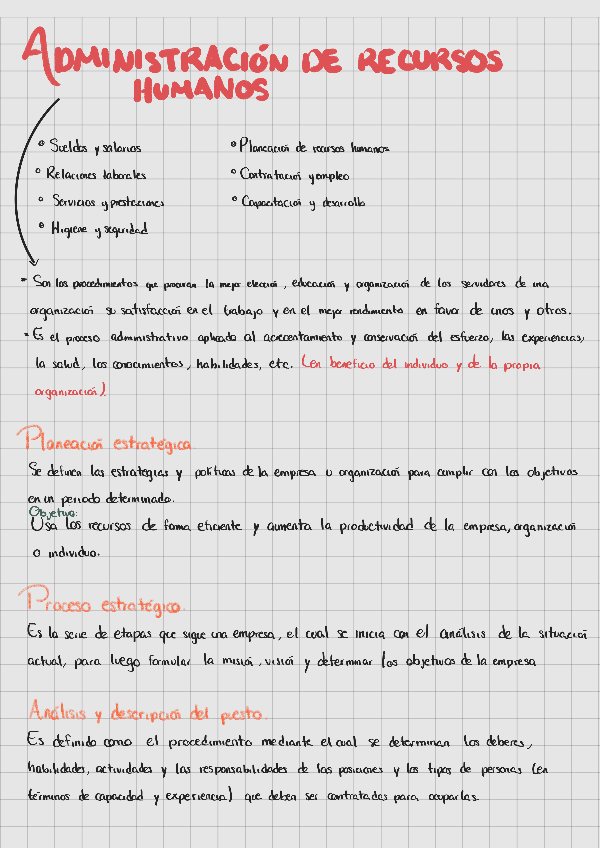 ADMINISTRACIÓN DE RECURSOS
HUMANOS
° Sueldos y salarios
° Relaciones laborales
° Servicios y prestaciones
° Higiene y seguridad
° Planeación de recursos humanos
° Contratación y empleo
° Capacitación y desarrollo
- Son los procedimientos que procuran la mejor elección, educación y organización de los servidores de una
organización su satisfacción en el trabajo y en el mejor rendimiento en favor de unos y otros.
- Es el proceso administrativo aplicado al acrecentamiento y conservación del esfuerzo, las experiencias,
la salud, los conocimientos, habilidades, etc. (en beneficio del individuo y de la propia
organización)
Planeación estratégica.
Se definen las estrategias y políticas de la empresa u organización para cumplir con los objetivos
en un periodo determinado.
Objetivo:
Usa los recursos de forma eficiente y aumenta la productividad de la empresa, organización
o individuo.
Proceso estratégico.
Es la serie de etapas que sigue una empresa, el cual se inicia con el análisis de la situación
actual, para luego formular la misión, visión y determinar los objetivos de la empresa
Análisis y descripción del puesto.
Es definido como el procedimiento mediante el cual se determinan los deberes,
habilidades, actividades y las responsabilidades de las posiciones y los tipos de personas (en
términos de capacidad y experiencia) que deben ser contratadas para ocuparlas.